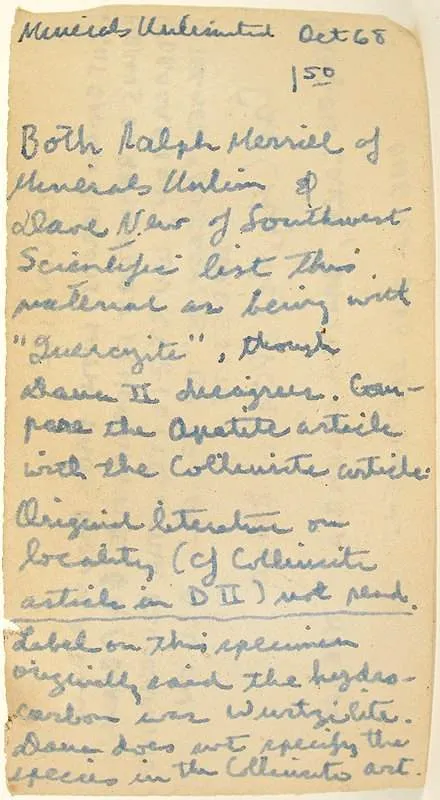 Minerals Unlimited Oct 68
1 50
Both Ralph Merrill of
Minerals Unlim &
Dave New of Southwest
Scientific list this
material as being with
"Quercyite", though
Dana II disagrees. Com-
pare the Apatite article
with the Collinsite article.
Original literature on
locality (cf Collinsite
article in D II) not read.
Label on this specimen
originally said the hydro-
carbon was Wurtzilite.
Dana does not specify the
species in the Collinsite art.